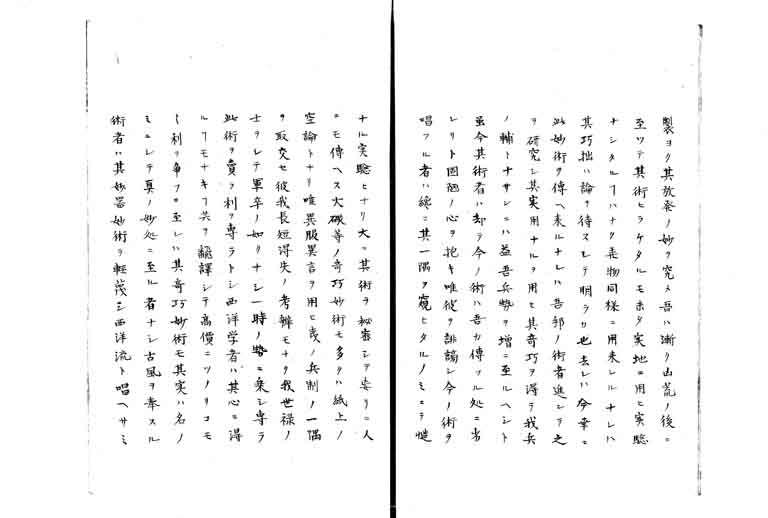 製ヨク其放発ノ妙ヲ究メ吾ハ漸ク山荒ノ後ニ
至ツテ其術ヒラケタルモ未タ実地ニ用ヒ実験
ナシタルヿハナク弄物同様ニ用来レルナレハ
其巧拙ハ論ヲ待スシテ明ラカ也去レハ今幸ニ
此妙術ヲ傳ヘ来ルナレハ吾邦ノ術者進ンテ之
ヲ研究シ其実用ナルヲ用ヒ其奇巧ヲ得テ我兵
ノ輔トナサンニハ益吾兵勢ヲ増ニ至ルヘシト
虽今其術者ハ却テ今ノ術ハ吾カ傳フル処ニ劣
レリト固陋ノ心ヲ抱キ唯彼ヲ誹謗シ今ノ術ヲ
唱フル者ハ纔ニ其一隅ヲ窺ヒタルノミニテ慥
ナル実驗ヒナリ大ニ其術ヲ秘密シテ妄リニ人
ニモ傳ヘス大礟等ノ奇巧妙術モ多クハ紙上ノ
空論トナリ唯異服異言ヲ用ヒ夷ノ兵制ノ一隅
ヲ取交セ彼我長短得失ノ考辨モナク我世禄ノ
士ヲシテ軍卒ノ如クナシ一時ノ勢ニ乗シ専ラ
此術ヲ賣リ利ヲ専ラトシ西洋学者ハ其心ニ得
ルヿモナキヿ共ヲ翻譯シテ高價ニツノリコモ
〱利ヲ争フニ至レハ其奇巧妙術モ其実ハ名ノ
ミニシテ真ノ妙処ニ至ル者ナシ古風ヲ奉スル
術者ハ其妙器妙術ヲ軽蔑シ西洋流ト唱ヘサミ